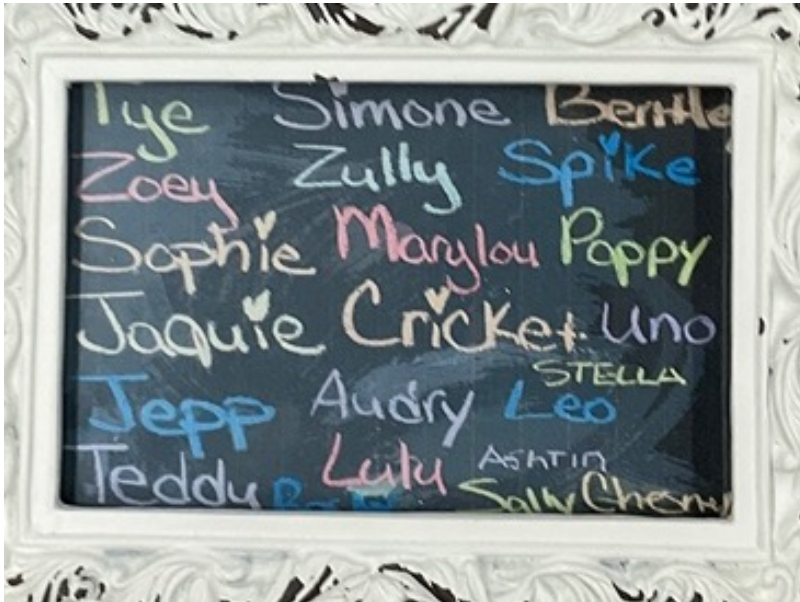 Tye Simone Bentle
Zoey Zully Spike
Sophie Marylou Poppy
Jaquie Cricket Uno
STELLA
Jepp Audry Leo
Teddy Lulu ASHTIN
Sally Cherry